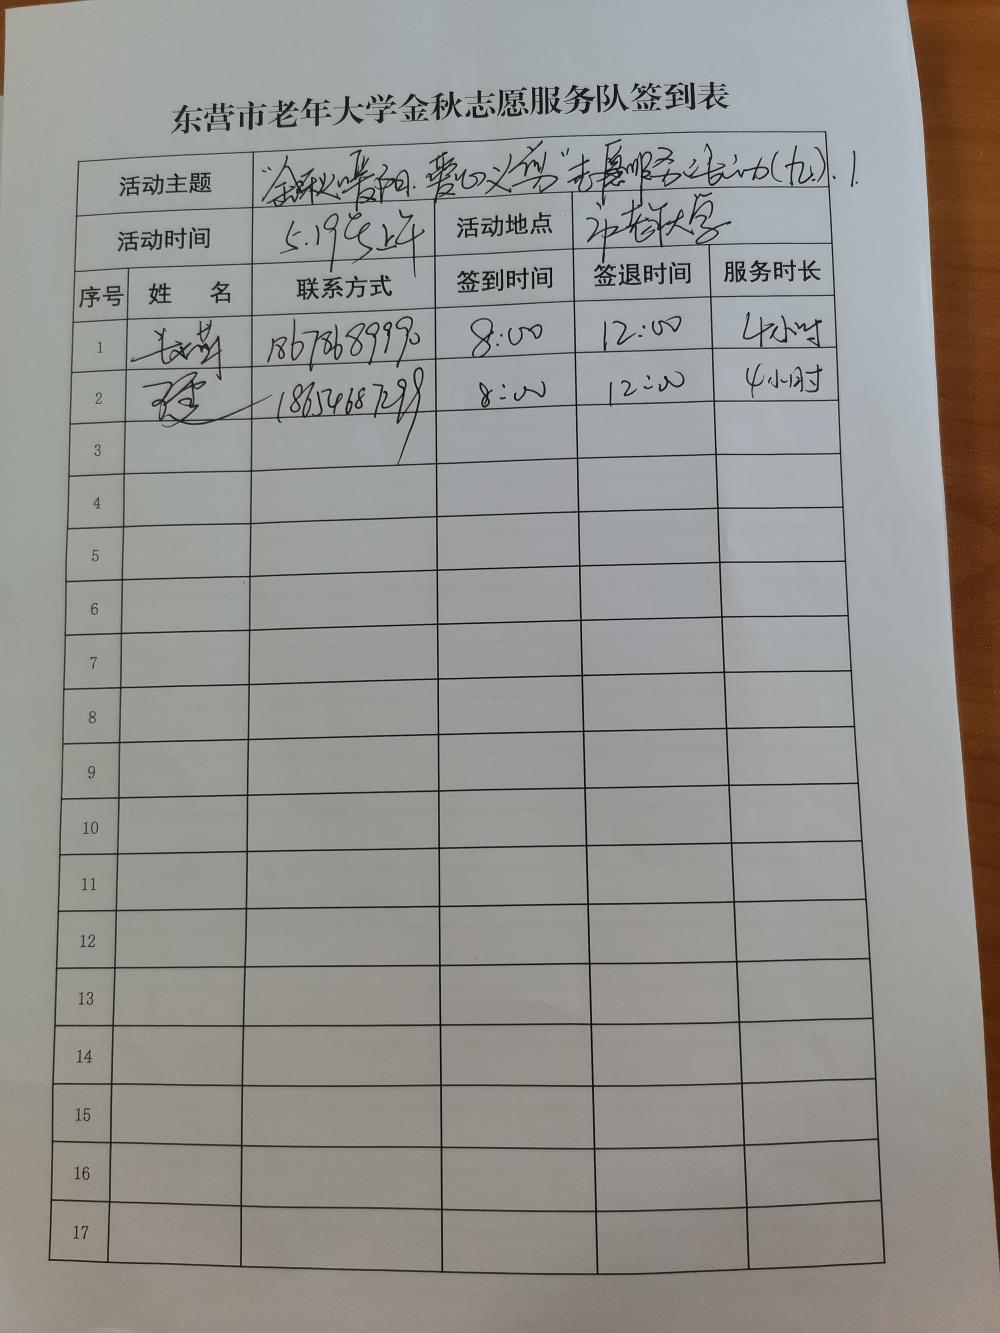 东营市老年大学金秋志愿服务队签到表
活动主题 "金秋暖夕阳.爱心义剪"志愿服务活动(九).1.
活动时间 5.19 上午 活动地点 市老年大学
序号 姓 名 联系方式 签到时间 签退时间 服务时长
1 18678689990 8:00 12:00 4小时
2 18654687299 8:00 12:00 4小时
3
4
5
6
7
8
9
10
11
12
13
14
15
16
17